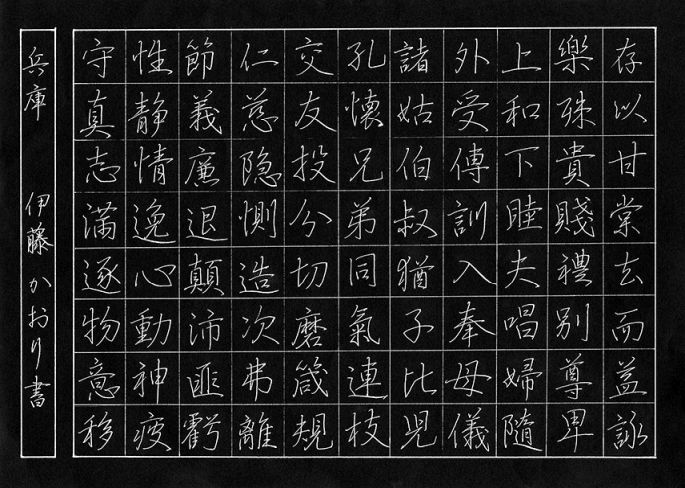 存以甘棠去而益詠
樂殊貴賤禮別尊卑
上和下睦夫唱婦隨
外受傅訓入奉母儀
諸姑伯叔猶子比児
孔懐兄弟同氣連枝
交友投分切磨箴規
仁慈隠惻造次弗離
節義廉退顛沛匪虧
性静情逸心動神疲
守真志満逐物意移
兵庫 伊藤かおり書